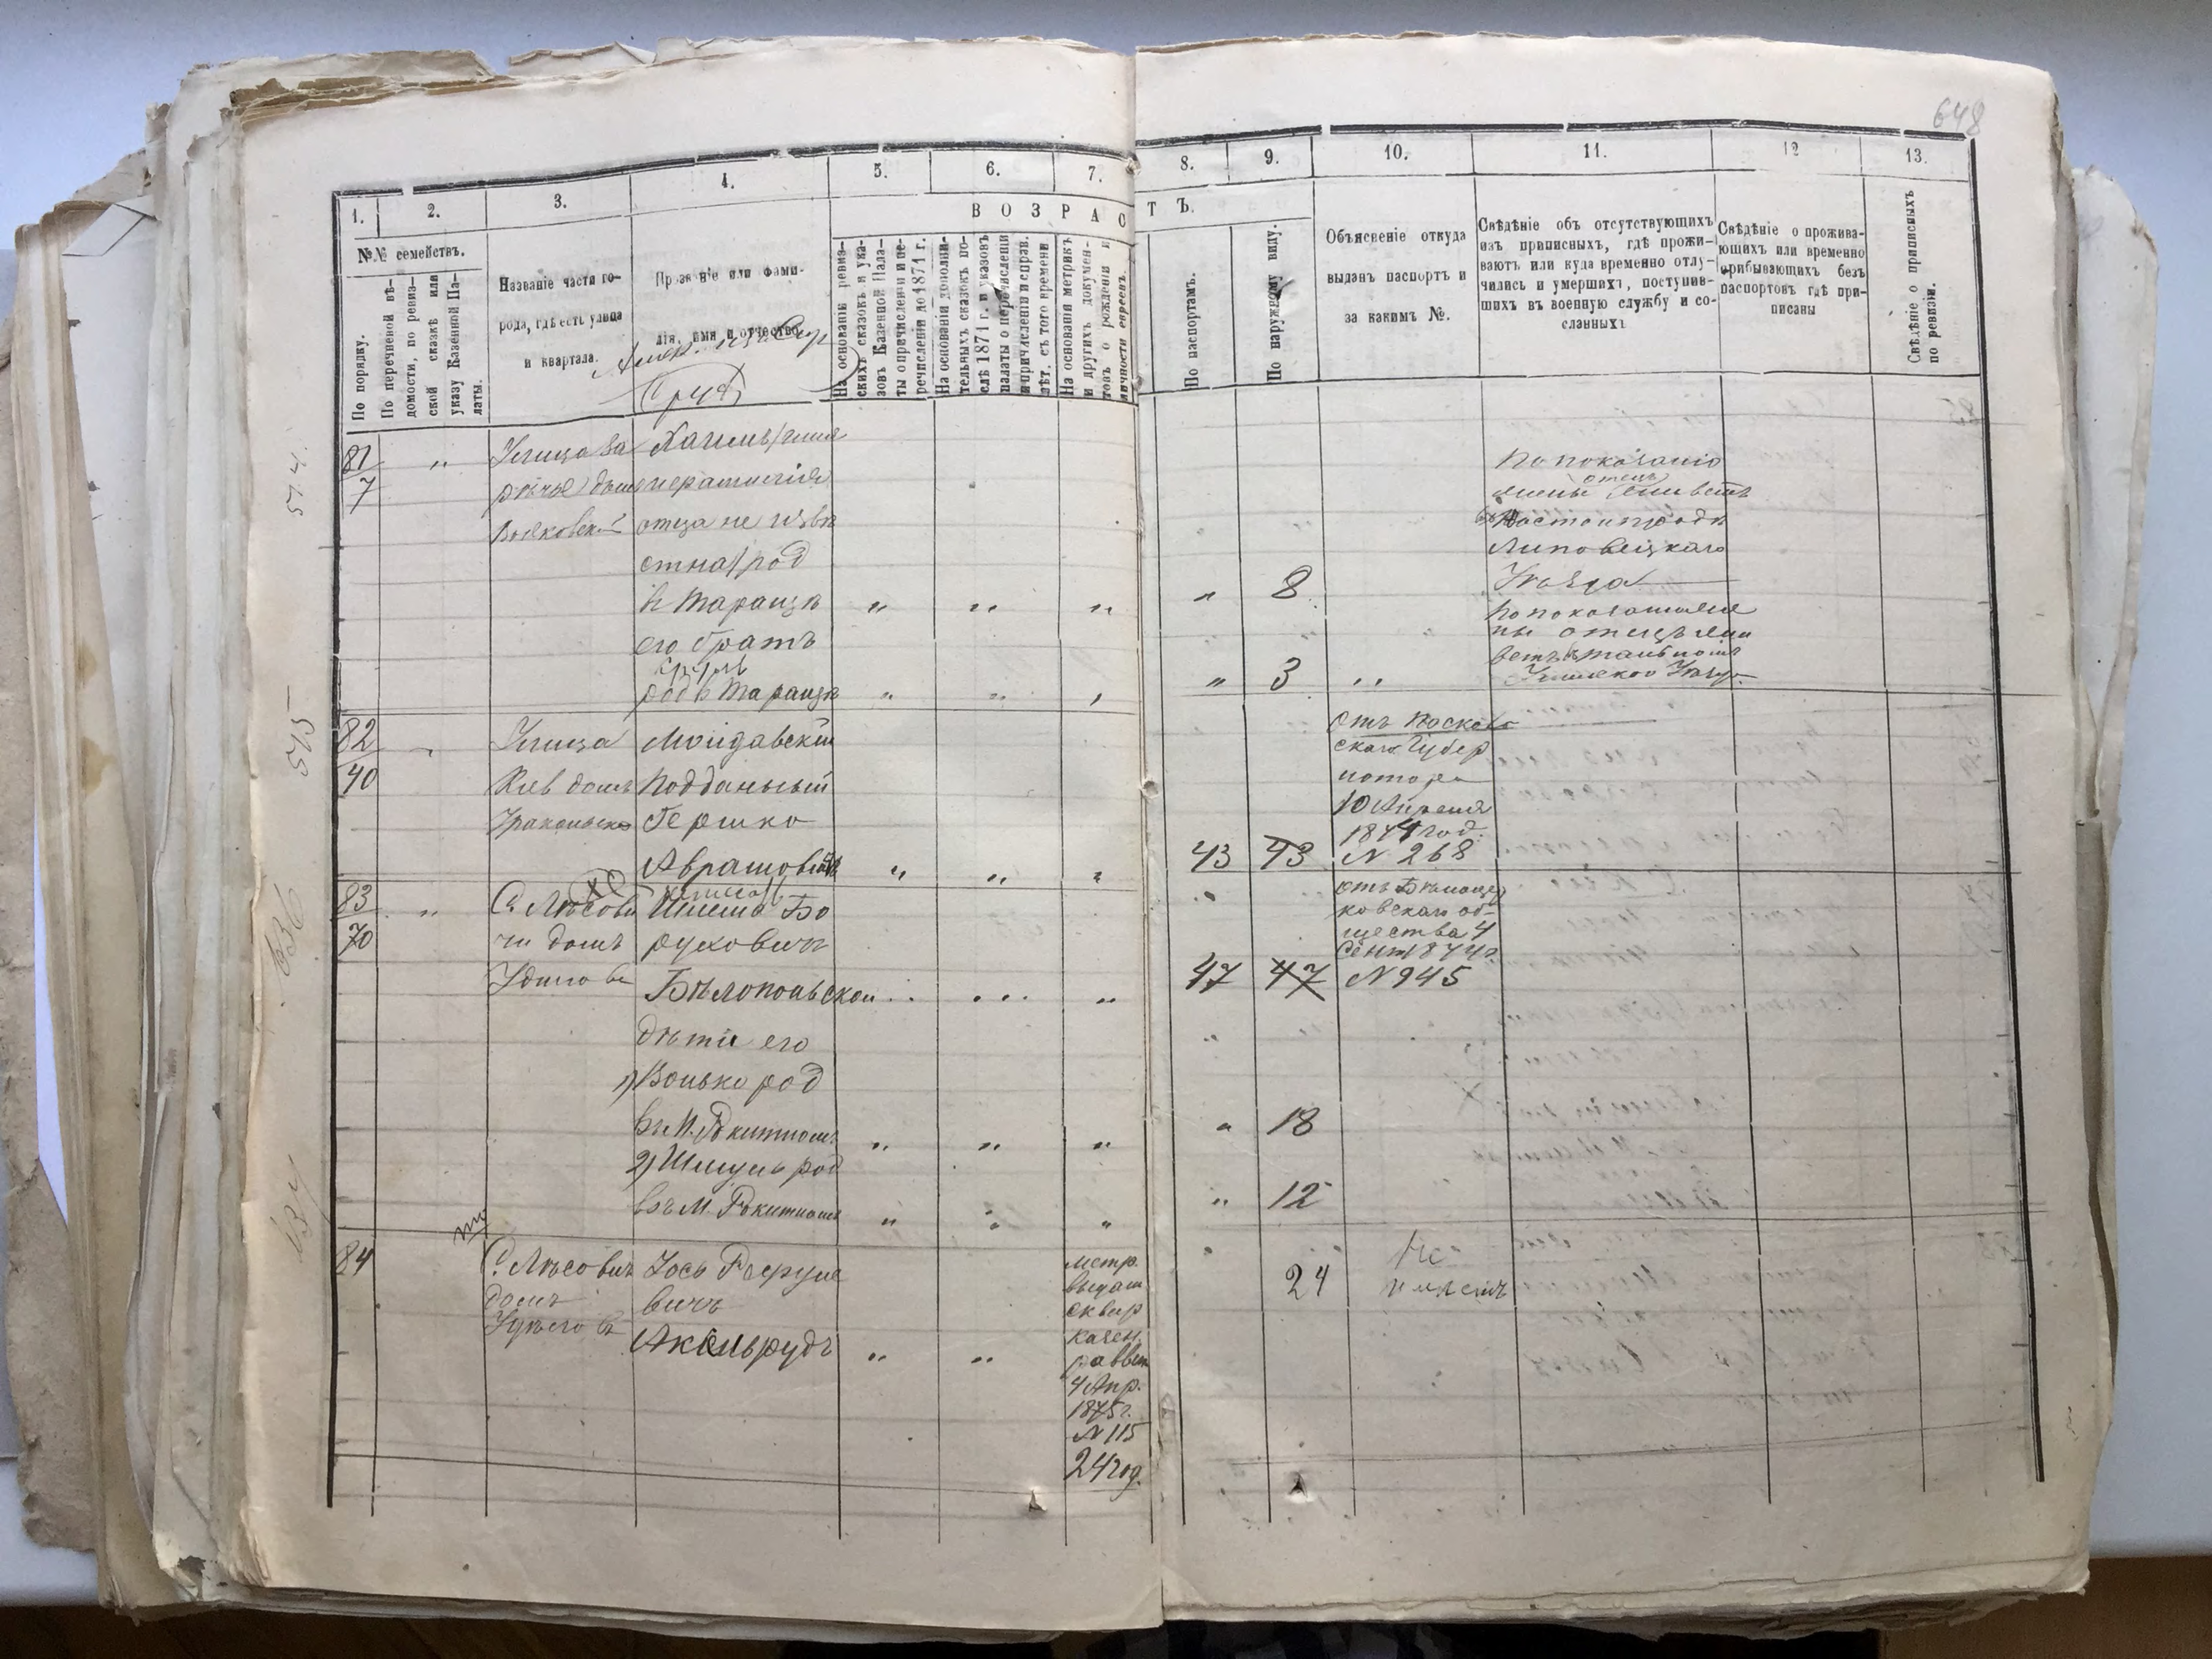 648
1.
2.
3.
4.
5.
6.
7.
8.
9.
10.
11.
12
13.
№№ семействъ.
В О З Р А С Т Ъ.
По порядку.
По перечневой вѣ-
домости, по ревиз-
ской сказкѣ или
указу Казенной Па-
латы.
Названіе части го-
рода, гдѣ есть улица
и квартала.
Прозваніе или фами-
лія, имя и отчество.
На основаніи ревиз-
скихъ сказокъ и ука-
зовъ Казенной Пала-
ты о причисленіи и пе-
речисленіи до 1871 г.
На основаніи дополни-
тельныхъ сказокъ по-
слѣ 1871 г. и указовъ
палаты о перечисленіи
и причисленіи и справ.
лѣт. съ того времени.
На основаніи метрикъ
и другихъ докумен-
товъ о рожденіи и
личности евреевъ.
По паспортамъ.
По наружному виду.
Объясненіе откуда
выданъ паспортъ и
за какимъ №.
Свѣдѣніе объ отсутствующихъ
изъ приписныхъ, гдѣ прожи-
ваютъ или куда временно отлу-
чились и умершихъ, поступив-
шихъ въ военную службу и со-
сланныхъ
Свѣдѣніе о прожива-
ющихъ или временно
прибывающихъ безъ
паспортовъ гдѣ при-
писаны
Свѣдѣніе о приписныхъ
по ревизіи.
574.
81
7
Улица За
рѣчье домъ
отца не извѣ
стна) род
в Таращѣ
его братъ
род в Таращѣ
8
3
По показанію
жены отецъ живетъ
Липовецкаго
Уѣзда
По показанію же
ны отецъ жи
ветъ
575
82
40
Улица
Киев домъ
Молдавскій
Подданный
Гершко
Аврамовичъ
43
43
скаго Губер
натора
10 Апреля
1874 год.
N 268
636
83
70
С. Лѣсови
чи домъ
Удило
Шлема Бо
руховичъ
Бѣлопольской
дѣти его
1) Волько род
въ М. Рокитномъ
2) Шмуль род
въ М. Рокитномъ
47
47
18
12
отъ Бѣлоцер
ковскаго об-
щества 4
Сент 1874 г.
N 945
637
84
С. Лѣсовичи
домъ
Іось
вичъ
Аксельрудъ
метр.
выдан
сквир
казен.
раввин
4 Апр.
1875 г.
N 115
24 год.
24
Не
имѣетъ